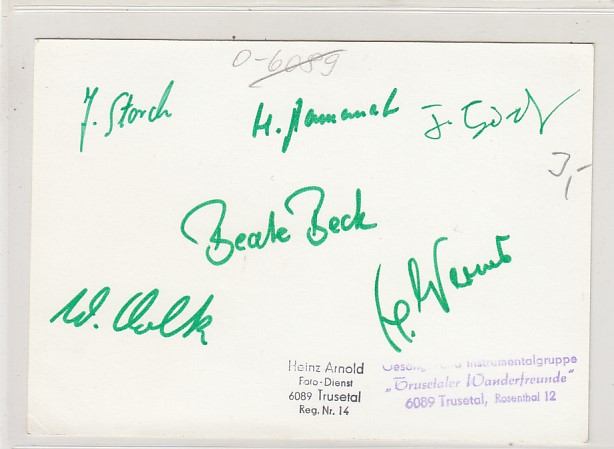 0-6089
J. Storch
H.
J.
3,-
Beate Beck
W. Volk
H. Werner
Heinz Arnold
Foto-Dienst
6089 Trusetal
Reg. Nr. 14
Gesangs- und Instrumentalgruppe
„Trusetaler Wanderfreunde"
6089 Trusetal, Rosenthal 12